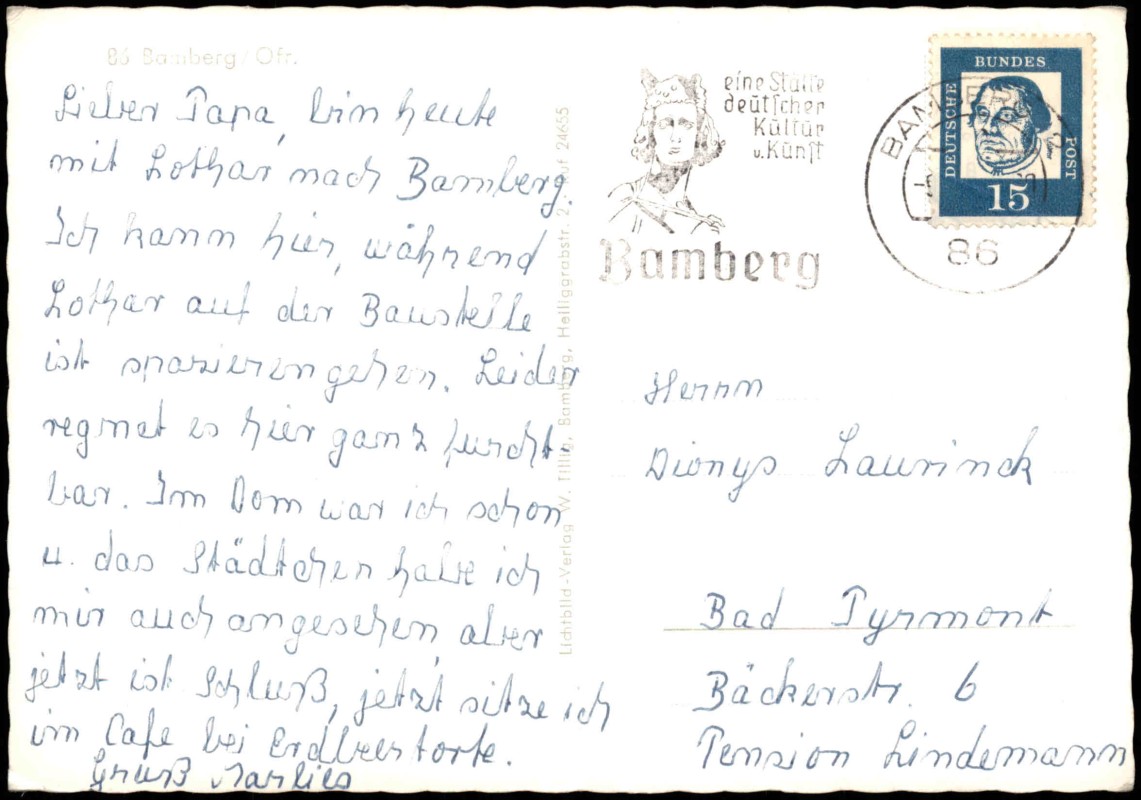 86 Bamberg/Ofr.
Lieber Papa, bin heute
mit Lothar nach Bamberg.
Ich kann hier, während
Lothar auf der Baustelle
ist spazierengehen. Leider
regnet es hier ganz furcht-
bar. Im Dom war ich schon
u. das Städtchen habe ich
mir auch angesehen, aber
jetzt ist Schluß, jetzt sitze ich
im Cafe bei Erdbeertorte.
Gruß Marlies
Lichtbild-Verlag W. Tillig, Bamberg, Heiliggrabstr. 2, Ruf 24655
eine Stätte
deutscher
Kultur
u. Kunst
Bamberg
BAMBERG
86
DEUTSCHE
BUNDES
POST
15
Herrn
Dionys Laurinck
Bad Pyrmont
Bäckerstr. 6
Pension Lindemann